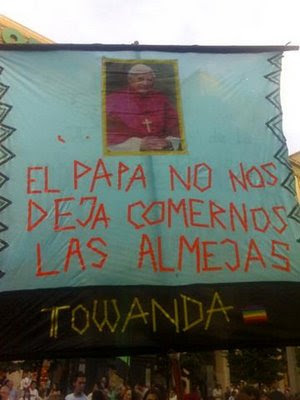 EL PAPA NO NOS
DEJA COMERNOS
LAS ALMEJAS
TOWANDA